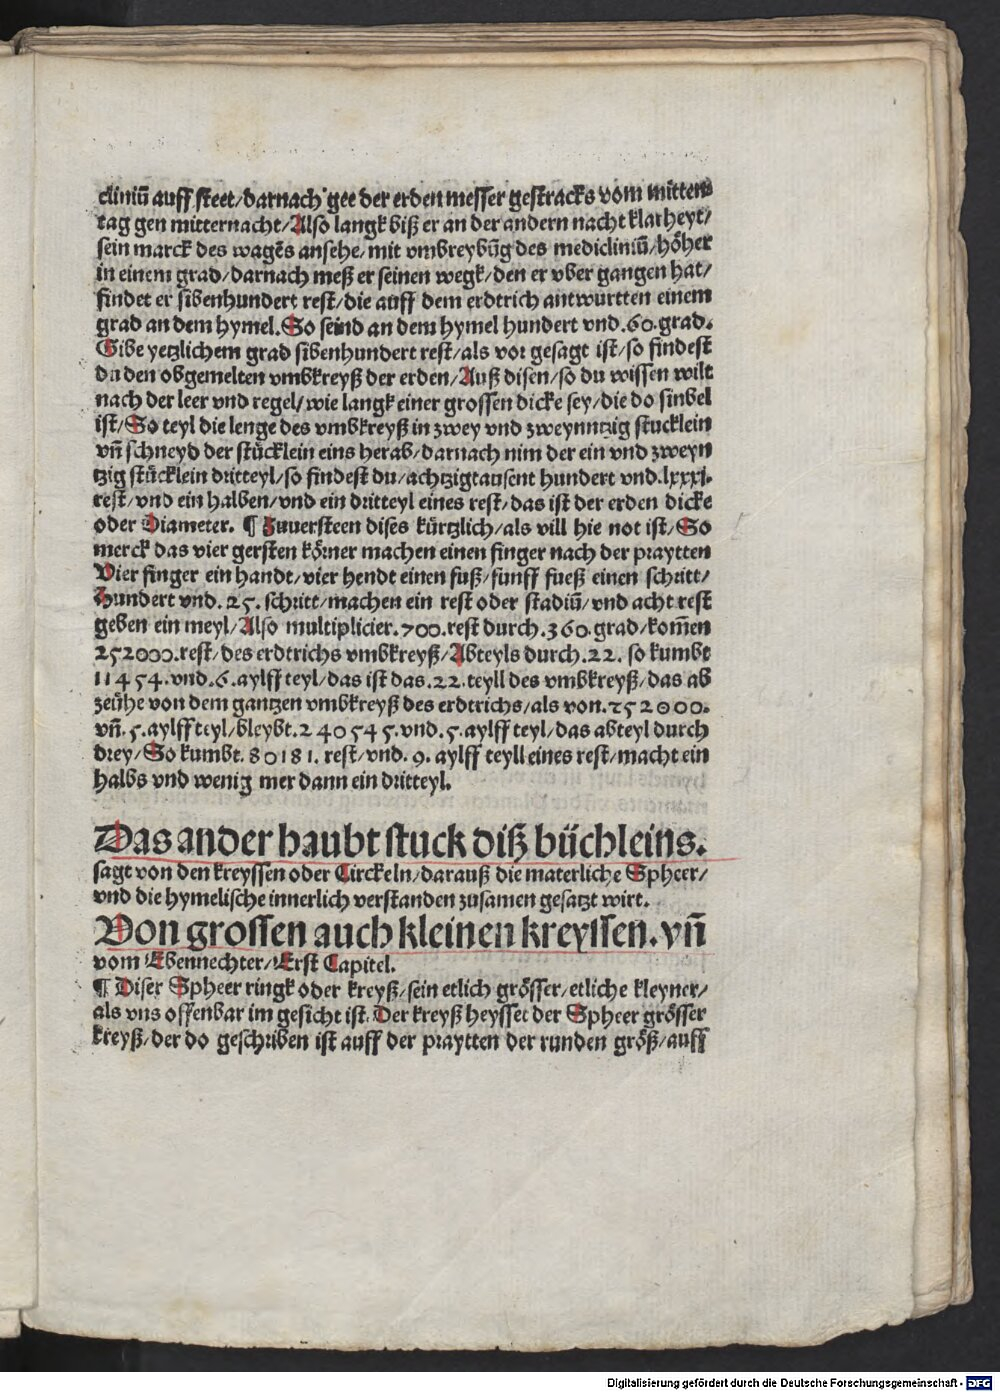 cliniū auff steet/darnach gee der erden messer gestracks vom mitten
tag gen mitternacht/Also langk biß er an der andern nacht klarheyt/
sein marck des wagēs ansehe/mit vmbreybūg des medicliniū/höher
in einem grad/darnach meß er seinen wegk/den er vber gangen hat/
findet er sibenhundert rest/die auff dem erdtrich antwurtten einem
grad an dem hymel. So seind an dem hymel hundert vnd .60. grad.
Gibe yetzlichem grad sibenhundert rest/als vor gesagt ist/so findest
du den obgemelten vmbkreyß der erden/Auß disen/so du wissen wilt
nach der leer vnd regel/wie langk einer grossen dicke sey/die do sinbel
ist/So teyl die lenge des vmbkreyß in zwey vnd zweynntzig stucklein
vñ schneyd der stücklein eins herab/darnach nim der ein vnd zweyn
tzig stücklein dritteyl/so findest du/achtzigtausent hundert vnd.lxxxi.
rest/vnd ein halben/vnd ein dritteyl eines rest/das ist der erden dicke
oder Diameter. ¶ Zuuersteen dises kürtzlich/als vill hie not ist/So
merck das vier gersten körner machen einen finger nach der praytten
Vier finger ein handt/vier hendt einen fuß/funff fueß einen schritt/
Hundert vnd. 25. schritt/machen ein rest oder stadiū/vnd acht rest
geben ein meyl/Also multiplicier. 700. rest durch. 360. grad/kom̄en
252000. rest/des erdtrichs vmbkreyß/Abteyls durch. 22. so kumbt
11454. vnd. 6. aylff teyl/das ist das. 22. teyll des vmbkreyß/das ab
zeühe von dem gantzen vmbkreyß des erdtrichs/als von. 252000.
vñ. 5. aylff teyl/bleybt. 240545. vnd. 5. aylff teyl/das abteyl durch
drey/So kumbt. 80181. rest/vnd. 9. aylff teyll eines rest/macht ein
halbs vnd wenig mer dann ein dritteyl.
Das ander haubt stuck diß büchleins.
sagt von den kreyssen oder Circkeln/darauß die materliche Spheer/
vnd die hymelische innerlich verstanden zusamen gesatzt wirt.
Von grossen auch kleinen kreyssen. vñ
vom Ebennechter/Erst Capitel.
¶ Diser Spheer ringk oder kreyß/sein etlich grösser/etliche kleyner/
als vns offenbar im gesicht ist. Der kreyß heysset der Spheer grösser
kreyß/der do geschriben ist auff der praytten der runden größ/auff
Digitalisierung gefördert durch die Deutsche Forschungsgemeinschaft - DFG